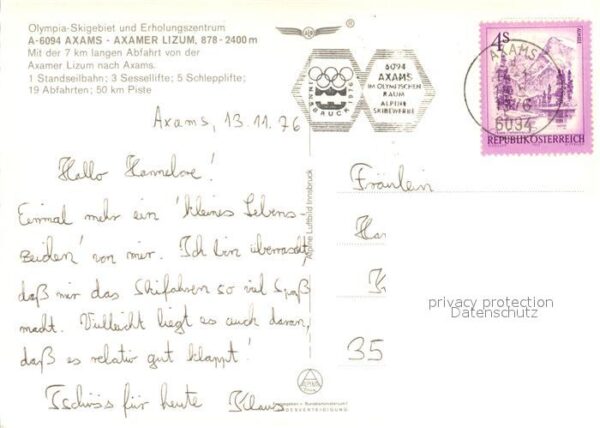 Olympia-Skigebiet und Erholungszentrum
A-6094 AXAMS - AXAMER LIZUM, 878-2400 m
Mit der 7 km langen Abfahrt von der
Axamer Lizum nach Axams.
1 Standseilbahn; 3 Sessellifte; 5 Schlepplifte;
19 Abfahrten; 50 km Piste
INNSBRUCK 1976
6094
AXAMS
IM OLYMPISCHEN
RAUM
ALPINE
SKIBEWERBE
AXAMS
6094
4S
REPUBLIK ÖSTERREICH
Axams, 13.11.76
Hallo Hannelore!
Einmal mehr ein 'kleines Lebens-
zeichen' von mir. Ich bin überrascht,
daß mir das Skifahren so viel Spaß
macht. Vielleicht liegt es auch daran,
daß es relativ gut klappt!
Tschüss für heute Klaus
Alpine Luftbild Innsbruck
Fräulein
Ha
K
35
privacy protection
Datenschutz